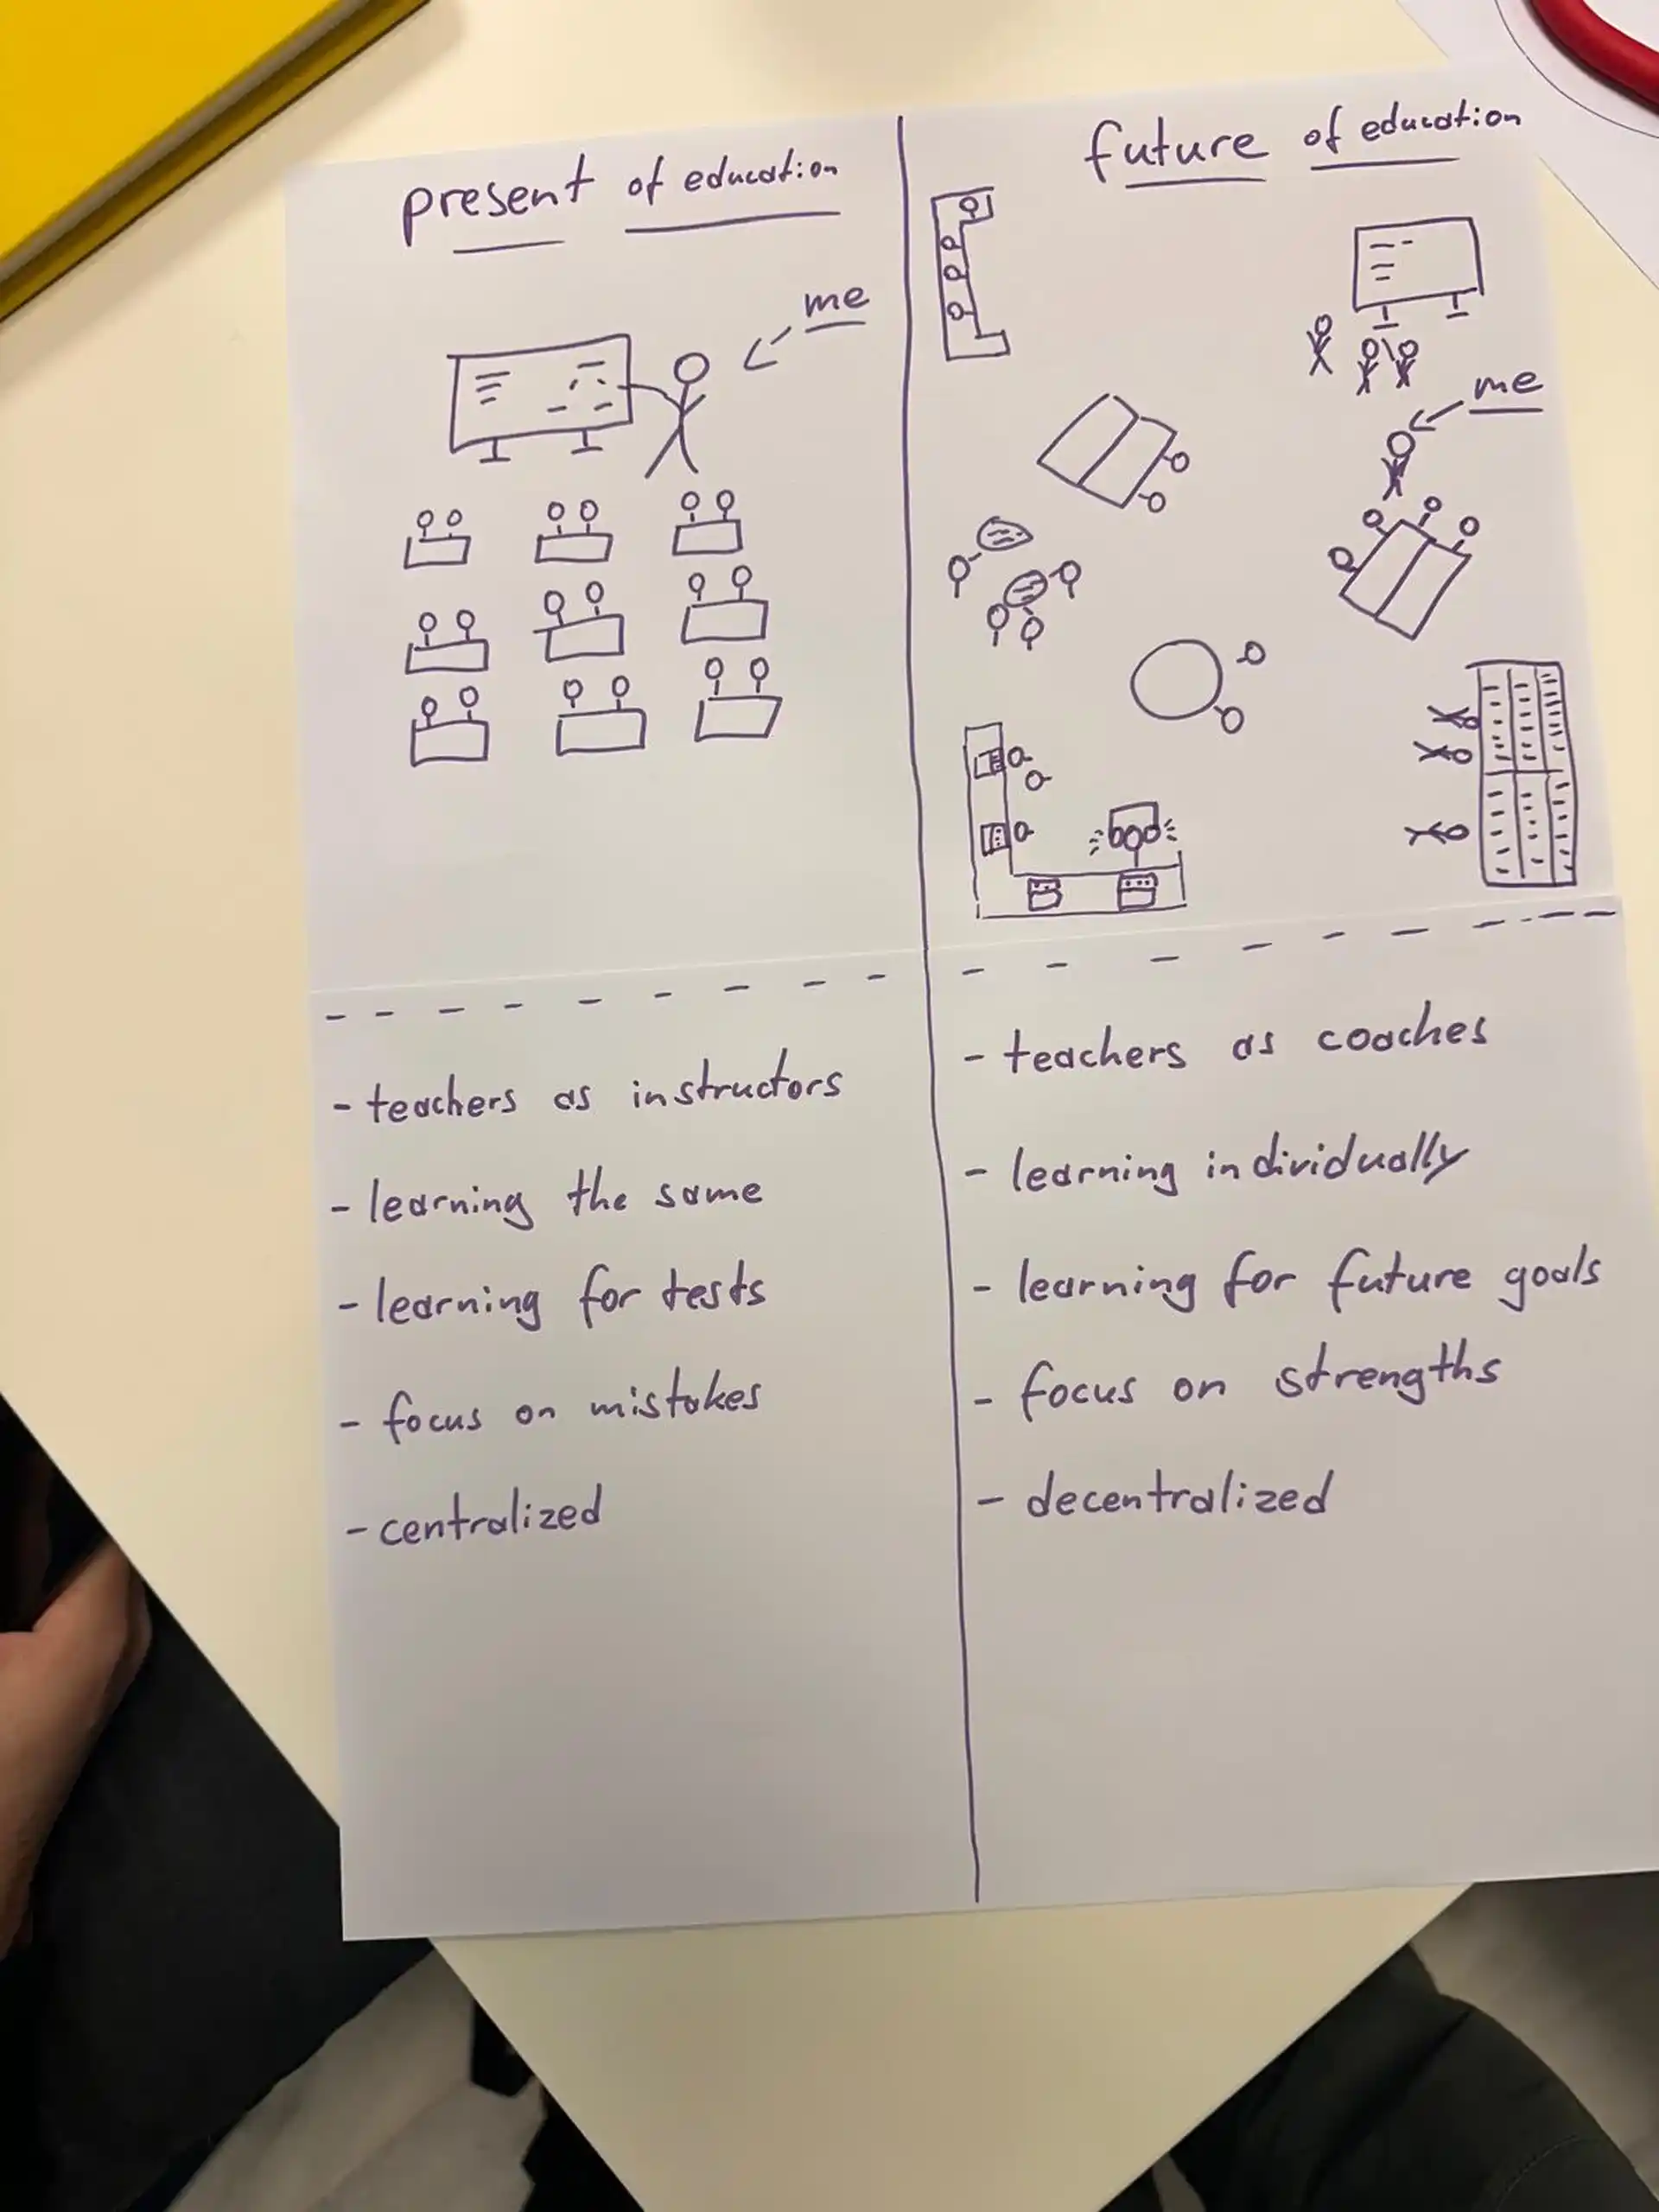 present of education
me
- teachers as instructors
- learning the same
- learning for tests
- focus on mistakes
- centralized
future of education
me
- teachers as coaches
- learning individually
- learning for future goals
- focus on strengths
- decentralized